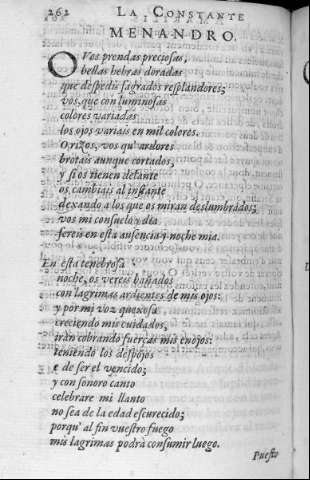 262 LA CONSTANTE
MENANDRO.
O Vos prendas preciosas,
bellas hebras doradas
que despedis sagrados resplandores;
vos, que con luminosas
colores variadas
los ojos variais en mil colores.
O rizos, vos qu' ardores
brotais aunque cortados,
y si os tienen delante
os cambiais al instante
dexando a los que os miran deslumbrados;
vos mi consuelo y dia
sereis en esta ausencia y noche mia.
En esta tenebrosa
noche, os vereis bañados
con lagrimas ardientes de mis ojos:
y por mi voz quexosa
creciendo mis cuidados,
iran cobrando fuerças mis enojos:
teniendo los despojos
e de ser el vencido;
y con sonoro canto
celebrare mi llanto
no sea de la edad escurecido;
porqu' al fin vuestro fuego
mis lagrimas podrà consumir luego.
Puesto